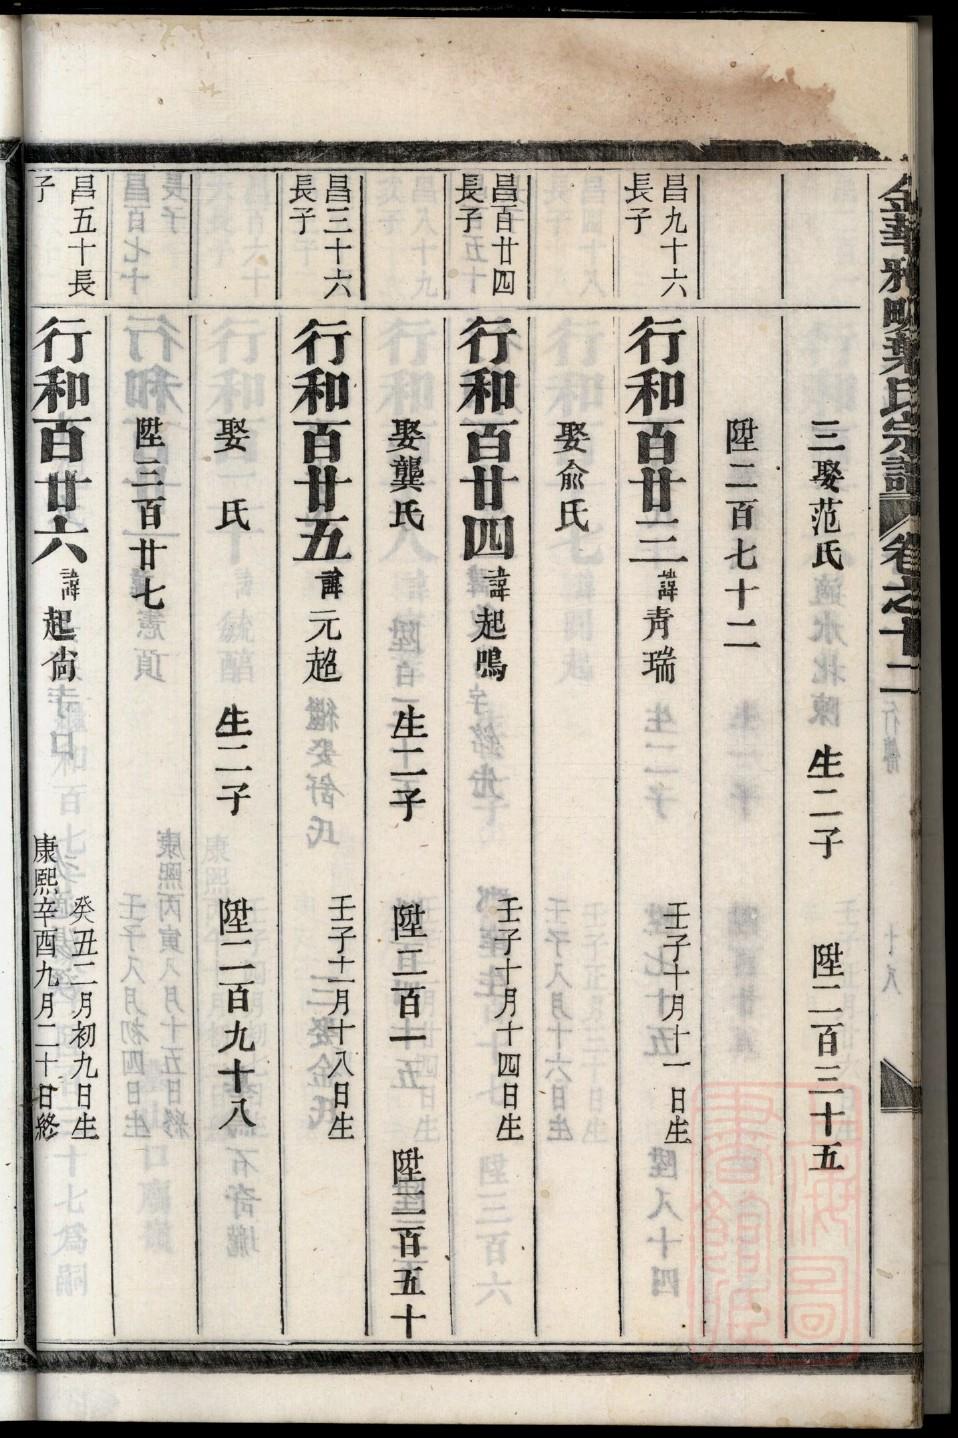 金華雅畈葉氏宗譜 卷之十二 行傳 十八
三娶范氏 生二子 陞二百三十五
陞二百七十二
昌九十六長子
行和百廿三 諱青瑞 壬子十月十一日生
娶俞氏
昌百廿四長子
行和百廿四 諱起鳴 壬子十月十四日生
娶龔氏 生二子 陞二百一五 陞二百五十
昌三十六長子
行和百廿五 諱元超 壬子十一月十八日生
娶 氏 生二子 陞二百九十八
陞三百廿七
昌五十長子
行和百廿六 諱起尙 癸丑二月初九日生 康熙辛酉九月二十日終